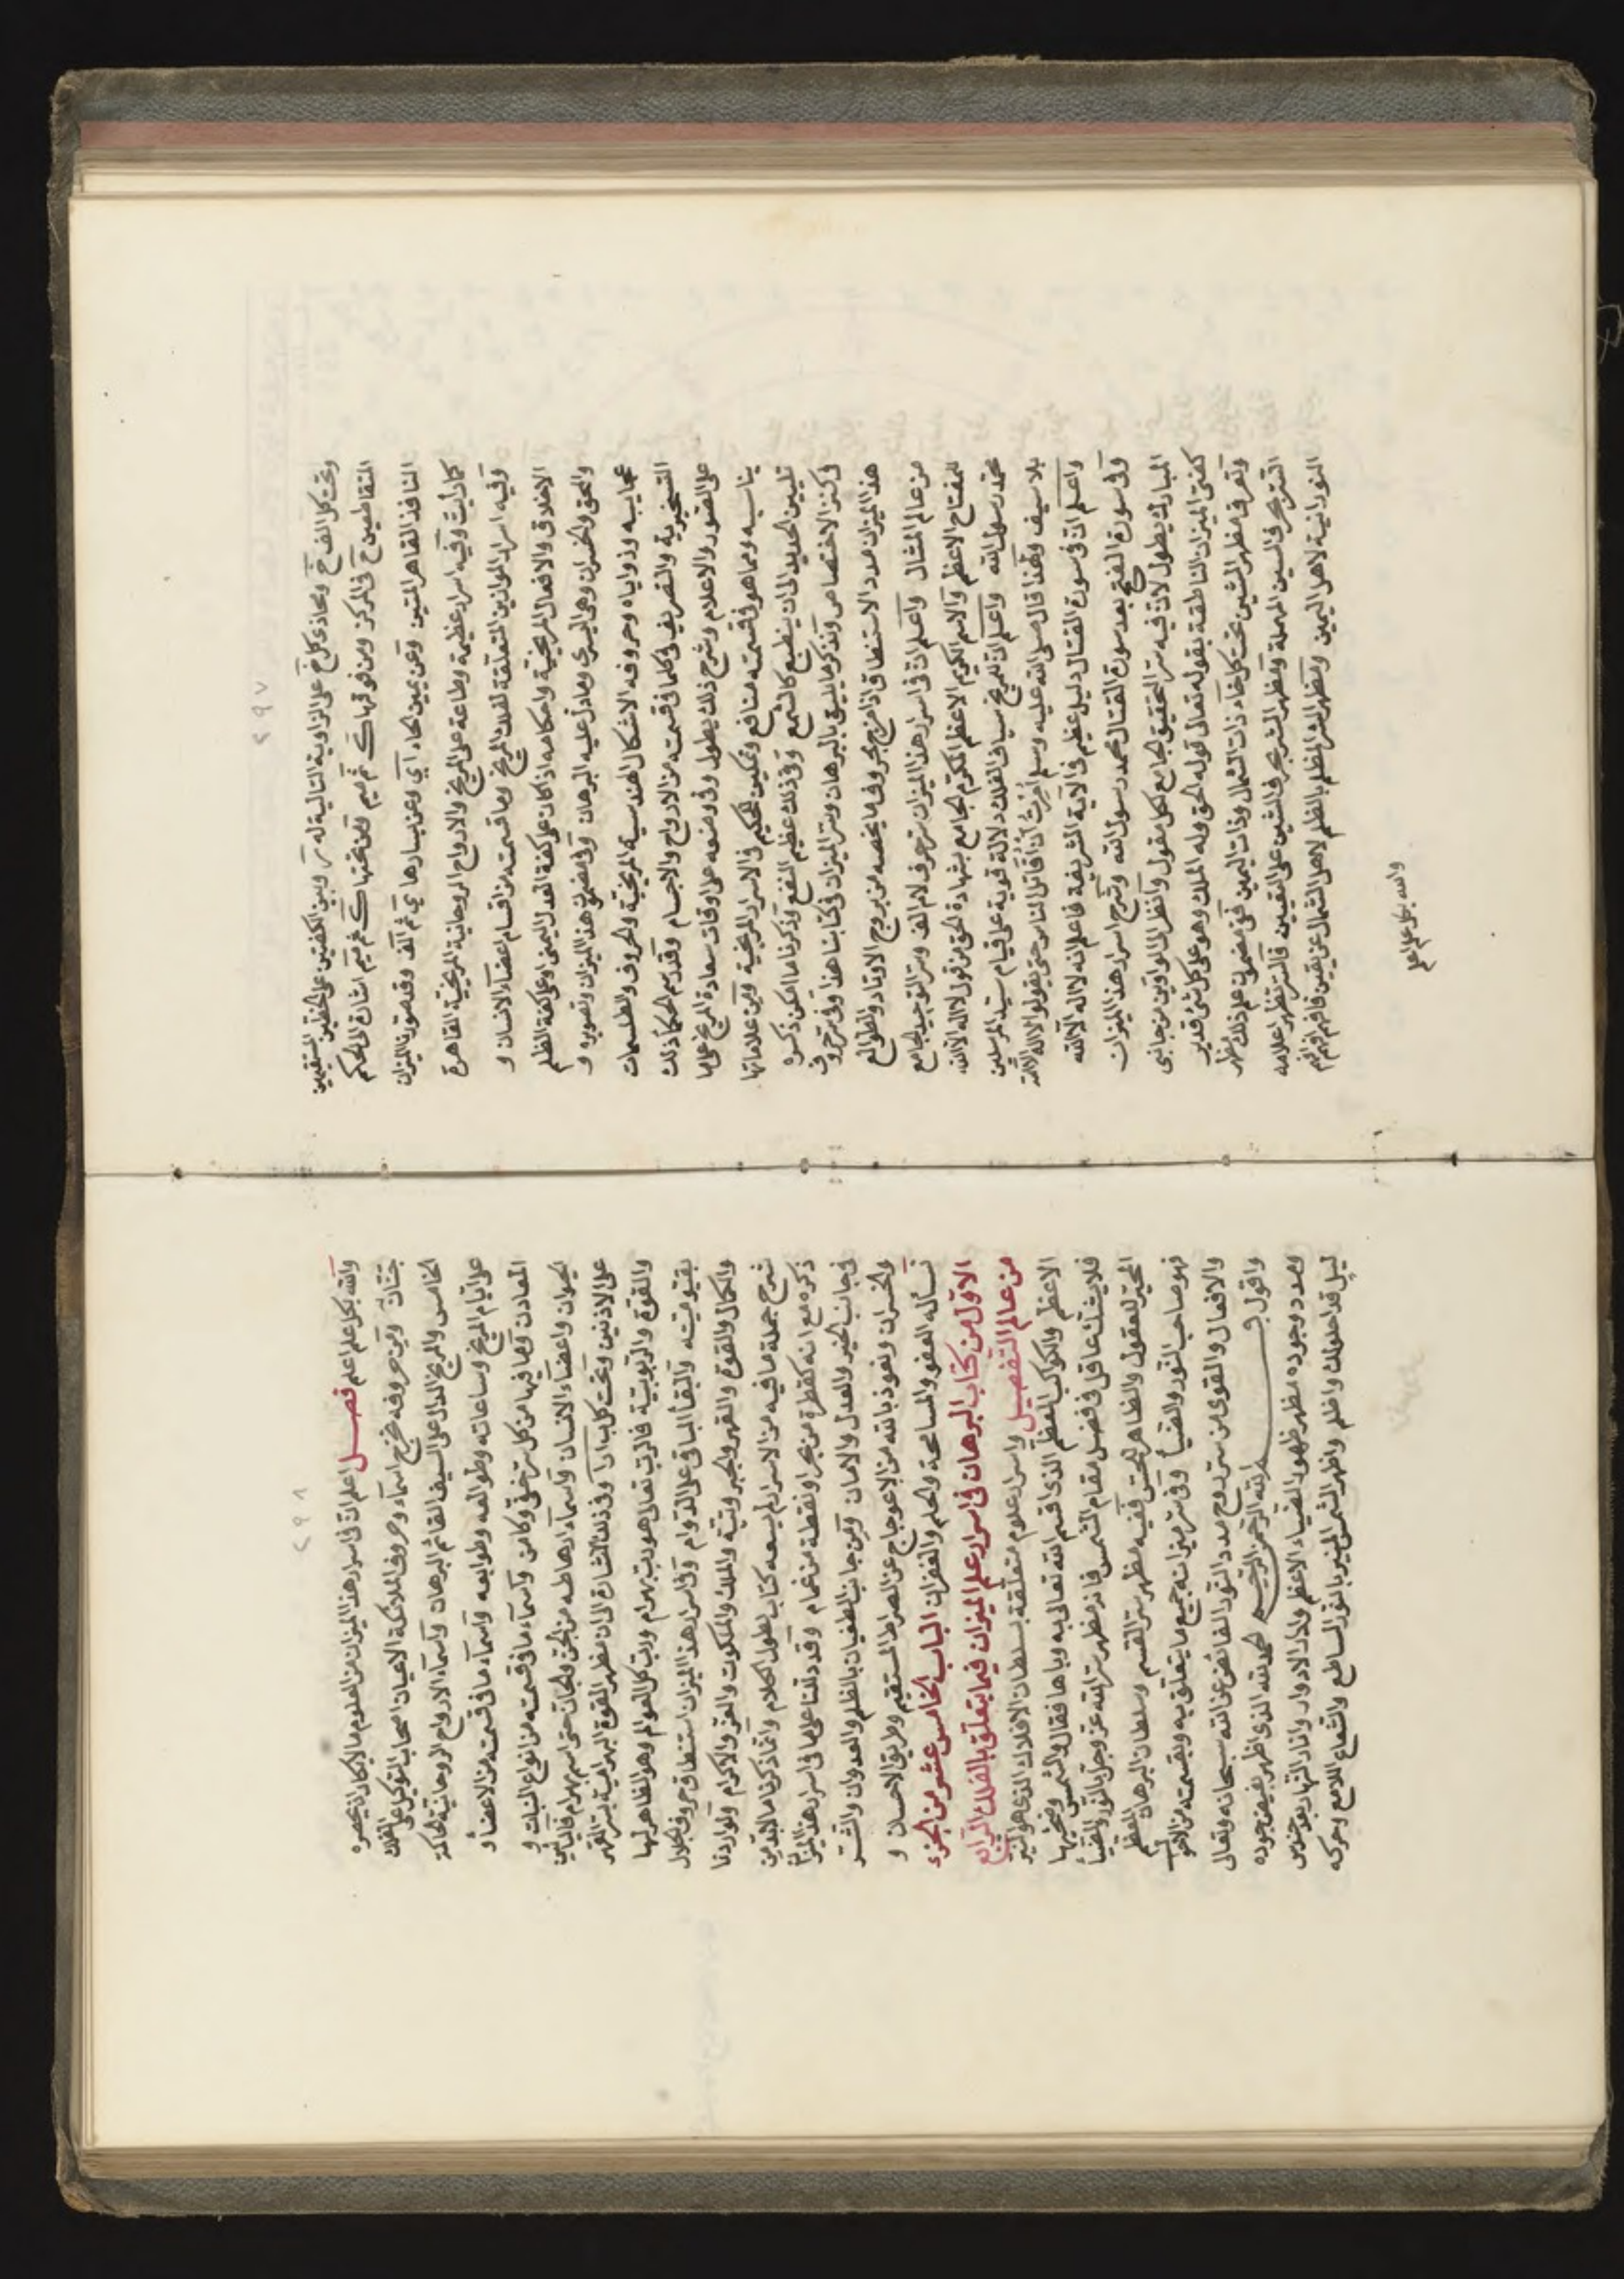 ٢٩٧
وتحت كل الف خ ومحاذى كل خ على الزاوية التالية له ر وبين الكفتين على الخطين المستقيمين
المتقاطعين خ فى المركز ومن فوقها ك ثم ميم ومن تحتها ك ثم ميم اشارة الى الحكم
النافذ القاهر المتين وعن يمين الحاء اي وعن يسارها ي ثم الف وقد صورنا الميزان
كما رأيت وفيه اسرار عظيمة وطاعة على المريخ والارواح الروحانية المريخية القاهرة
وفيه اسرار الموازين المتعلقة لفلك المريخ وما قسمته من اقسام اعضاء الانسان و
الاخلاق والافعال المريخية واحكامه اذا كان على كفة العدل اليمنى او على كفة الظلم
والحق والخسران وهى اليسرى وما دل عليه البرهان وفى مضمون هذا الميزان وتصويره و
عجايبه وزواياه وحروفه الاشكال الهندسية المريخية والحروف والطلسمات
التسخيرية والتصريف فى كلما فى قسمته من الارواح والاجسام وقد رسم الحكماء ذلك
على الصور والاعلام وشرح ذلك يطول وفى وضعه على اوقات سعادة المريخ على ما
يناسبه ومما هو فى قسمته منافع وتمكين للحكيم فى الاسرار المريخية ومن علاماتها
تليين الحديد الى ان ينطبع كالشمع وفى ذلك عظيم النفع وذكرنا ما امكن ذكره
فى كنز الاختصاص ونذكر ما يليق بالبرهان وسر الميزان فى كتابنا هذا وفى سر حروف
هذا الميزان مدد الاستنطاق اذا مزج بحروف ما يخصه من بروج الاوتاد والطوالع
من عالم المثال واعلم ان فى اسرار هذا الميزان سر حرف لام الف وسر التوحيد الجامع
للمفتاح الاعظم والاسم الكريم الاعظم المكرم الجامع بشهادة الحق من قول لا اله الا الله
محمد رسول الله واعلم ان للمريخ سيافى الفلك دلالة قوية على قيام سيد المرسلين
بلا سيف ولهذا قال صلى الله عليه وسلم امرت ان اقاتل الناس حتى يقولوا لا اله الا الله
واعلم ان فى سورة القتال دليل عظيم فى الآية الشريفة فاعلم انه لا اله الا الله
وفى سورة الفتح بعد سورة القتال محمد رسول الله وشرح اسرار هذا الميزان
المبارك يطول لان فيه سر التحقيق الجامع لكل مقول وانظر الى الواوين من جانبى
كفتى الميزان الناطقة بقوله تعالى قوله الحق وله الملك وهو على كل شئ قدير
وتعرف مظهر الشين تحت كل خاء ذات الشمال وذات اليمين ففى مضمون علم ذلك مظهر
السر بحرف السين المهملة ومظهر الشر بحرف الشين على التعيين فالسر تظهر اعلامه
النورانية لاهل اليمين ومظهر الشر المظلم بالظلم لاهل الشمال عن يقين فافهم
والله بكل علم اعلم
٢٩٨
والله بكل علم اعلم فصل اعلم ان فى اسرار هذا الميزان من العلوم ما لا يكاد ان يحصره
جنان ومن حروفه تخرج اسماء وحروف الملائكة الاعيان اصحاب التوكيل على الفلك
الخامس والمريخ الدال على السيف القائم البرهان واسماء الارواح الروحانية الحاكمة
على ايام المريخ وساعاته وطوالعه وطوابعه واسماء ما فى قسمته من الاعضاء و
المعادن وما فيها من كل سر خفى وكامن واسماء ما فى قسمته من انواع النبات و
الحيوان واعضاء الانسان واسماء ارهاطه من الجن والجان حتى اسم بهرام فالبائين
على الاذنين وتحت كل ب ا ر ا وفى ذلك اشارة الى ان مظهر القوة البهرامية بسر القهر
والقوة والربوبية فالرب تعالى هو رب بهرام ورب كل العوالم وهو الظاهر لها
بقيوميته والبقاء الباقى على الدوام وفى اسرار هذا الميزان استنطاق حروف الجلال
والكمال والقوة والقهر والجبروتية والملك والملكوت والعز والاكرام ولو اردنا
شرح جملة ما فيه من الاسرار لم يسعه كتاب لطول الكلام وانما ذكرنا ما لا بد من
ذكره مع انه كقطرة من بحر او نقطة من غمام وقد دللنا على ما فى اسرار هذا الميزان
فى جانب الخير والعدل والامان ومن جانب الطغيان بالظلم والعدوان والشر
والخسران ونعوذ بالله من الاعوجاج عن الصراط المستقيم وطريق الاحسان و
نسأله العفو والمسامحة والحلم والغفران الباب الخامس عشر من الجزء
الاول من كتاب البرهان فى اسرار علم الميزان فيما يتعلق بالفلك الرابع
من عالم التفصيل واسرار علوم متعلقة بسلطان الافلاك الذى هو النير
الاعظم والكوكب المعظم الذى اقسم الله تعالى به وباها فقال والشمس وضحيها
فلا يشك عاقل فى فضل مقام الشمس فانه مظهر سر الله عز وجل بالنور والضياء
المحيّر للعقول والظاهر للحس ففيه مظهر سر القسم وسلطان البرهان المعظم
فهو صاحب النور والضيا وفى سر ميزانه جميع ما يتعلق به وبقسمته من الاقوال
والافعال والقوى من سر روح مدد النور الفائض عن الله سبحانه وتعالى
واقول بسم الله الرحمن الرحيم الحمد لله الذى اظهر بفيض جوده
ومدد وجوده مظهر ظهور الضياء الاعظم وادار الادوار وانار النهار بعد حندس
ليل قد احلولك واظلم واظهر الشمس المنير بالنور الساطع والشعاع اللامع وحركه